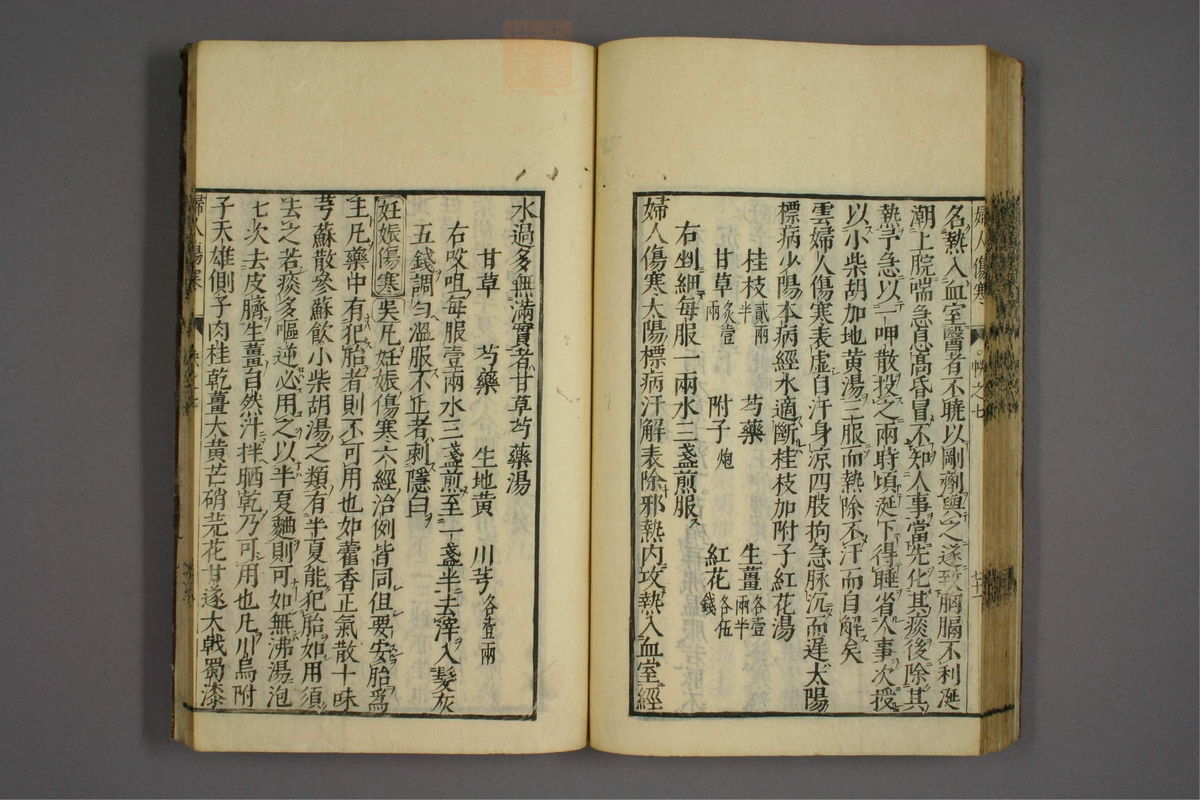 名熱入血室醫者不曉以剛劑與之遂致胸膈不利涎
潮上脘喘急息高昏冒不知人事當先化其痰後除其
熱予急以一呷散投之兩時頃涎下得睡省人事次授
以小柴胡加地黄湯三服而熱除不汗而自解矣
雲婦人傷寒表虚自汗身涼四肢拘急脉沉而遲太陽
標病少陽本病經水適斷桂枝加附子紅花湯
桂枝貳兩半 芍藥 生薑各壹兩半
甘草炙壹兩 附子炮 紅花各伍錢
右剉細每服一兩水三盞煎服
婦人傷寒太陽標病汗解表除邪熱内攻熱入血室經
水過多無滿實者甘草芍藥湯
甘草 芍藥 生地黄 川芎各壹兩
右㕮咀每服壹兩水三盞煎至一盞半去滓入髮灰
五錢調勻溫服不止者刺隱白
妊娠傷寒 吳凡妊娠傷寒六經治例皆同但要安胎爲
主凡藥中有犯胎者則不可用也如藿香正氣散十味
芎蘇散參蘇飲小柴胡湯之類有半夏能犯胎如用須
去之若痰多嘔逆必用之以半夏麯則可如無沸湯泡
七次去皮臍生薑自然汁拌晒乾乃可用也凡川烏附
子天雄側子肉桂乾薑大黄芒硝芫花甘遂大戟蜀漆
婦人傷寒